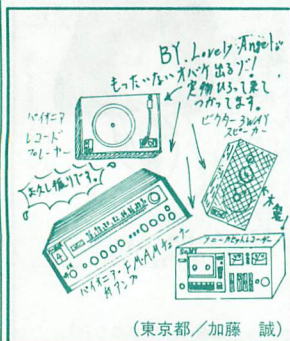 BY. Lovely Angel
もったいないオバケ出るゾ!
実物ひろって来て
つかってます。
パイオニア
レコード
プレーヤー
ビクター3WAY
スピーカー
木製!
パイオニア・FM.AMチューナー
付アンプ
ソニーカセットレコーダー
SONY
(東京都/加藤 誠)